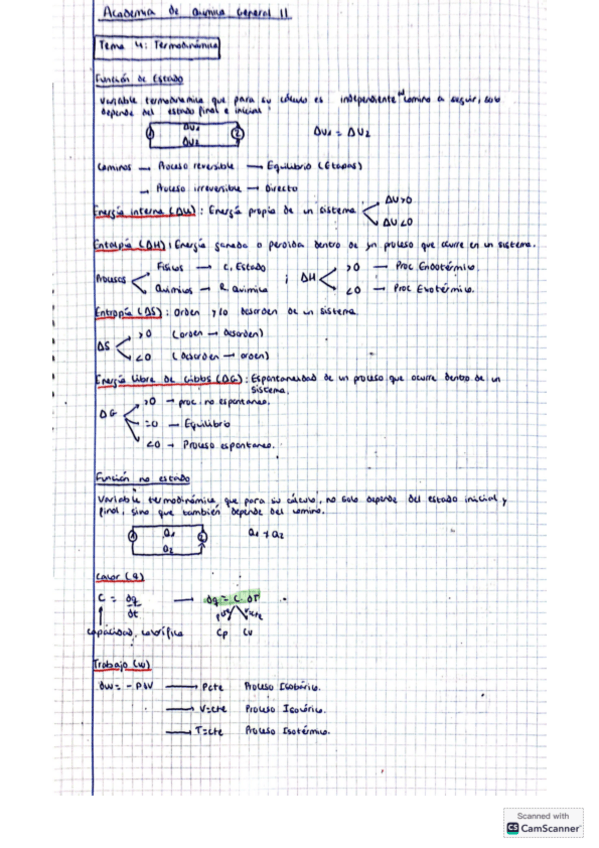 Academia de Química General II
Tema 4: Termodinámica
Función de Estado
Variable termodinámica que para su cálculo es independiente del camino a seguir, solo
depende del estado final e inicial.
1 ΔU1 2
ΔU2
ΔU1 = ΔU2
Caminos → Proceso reversible → Equilibrio (Etapas)
→ Proceso irreversible → Directo
Energía interna (ΔU): Energía propia de un sistema
ΔU>0
ΔU<0
Entalpía (ΔH): Energía ganada o perdida dentro de un proceso que ocurre en un sistema.
Procesos
Físicos → C. Estado
Químicos → R. Química
; ΔH
>0 → Proc. Endotérmico.
<0 → Proc Exotérmico.
Entropía (ΔS): Orden y/o desorden de un sistema
ΔS
>0 (orden → desorden)
<0 (desorden → orden)
Energía Libre de Gibbs (ΔG): Espontaneidad de un proceso que ocurre dentro de un
sistema.
ΔG
>0 → proc. no espontaneo.
=0 → Equilibrio
<0 → Proceso espontaneo.
Función no estado
Variable termodinámica, que para su cálculo, no solo depende del estado inicial y
final, sino que también depende del camino.
1 Q1 2
Q2
Q1 ≠ Q2
Calor (q)
C = δq/δt → δq = C. δT
P=cte V=cte
capacidad calorífica Cp Cv
Trabajo (w)
δw = - PdV → Pcte Proceso Isobárico.
→ V=cte Proceso Isocórico.
→ T=cte Proceso Isotérmico.
Scanned with
CS CamScanner